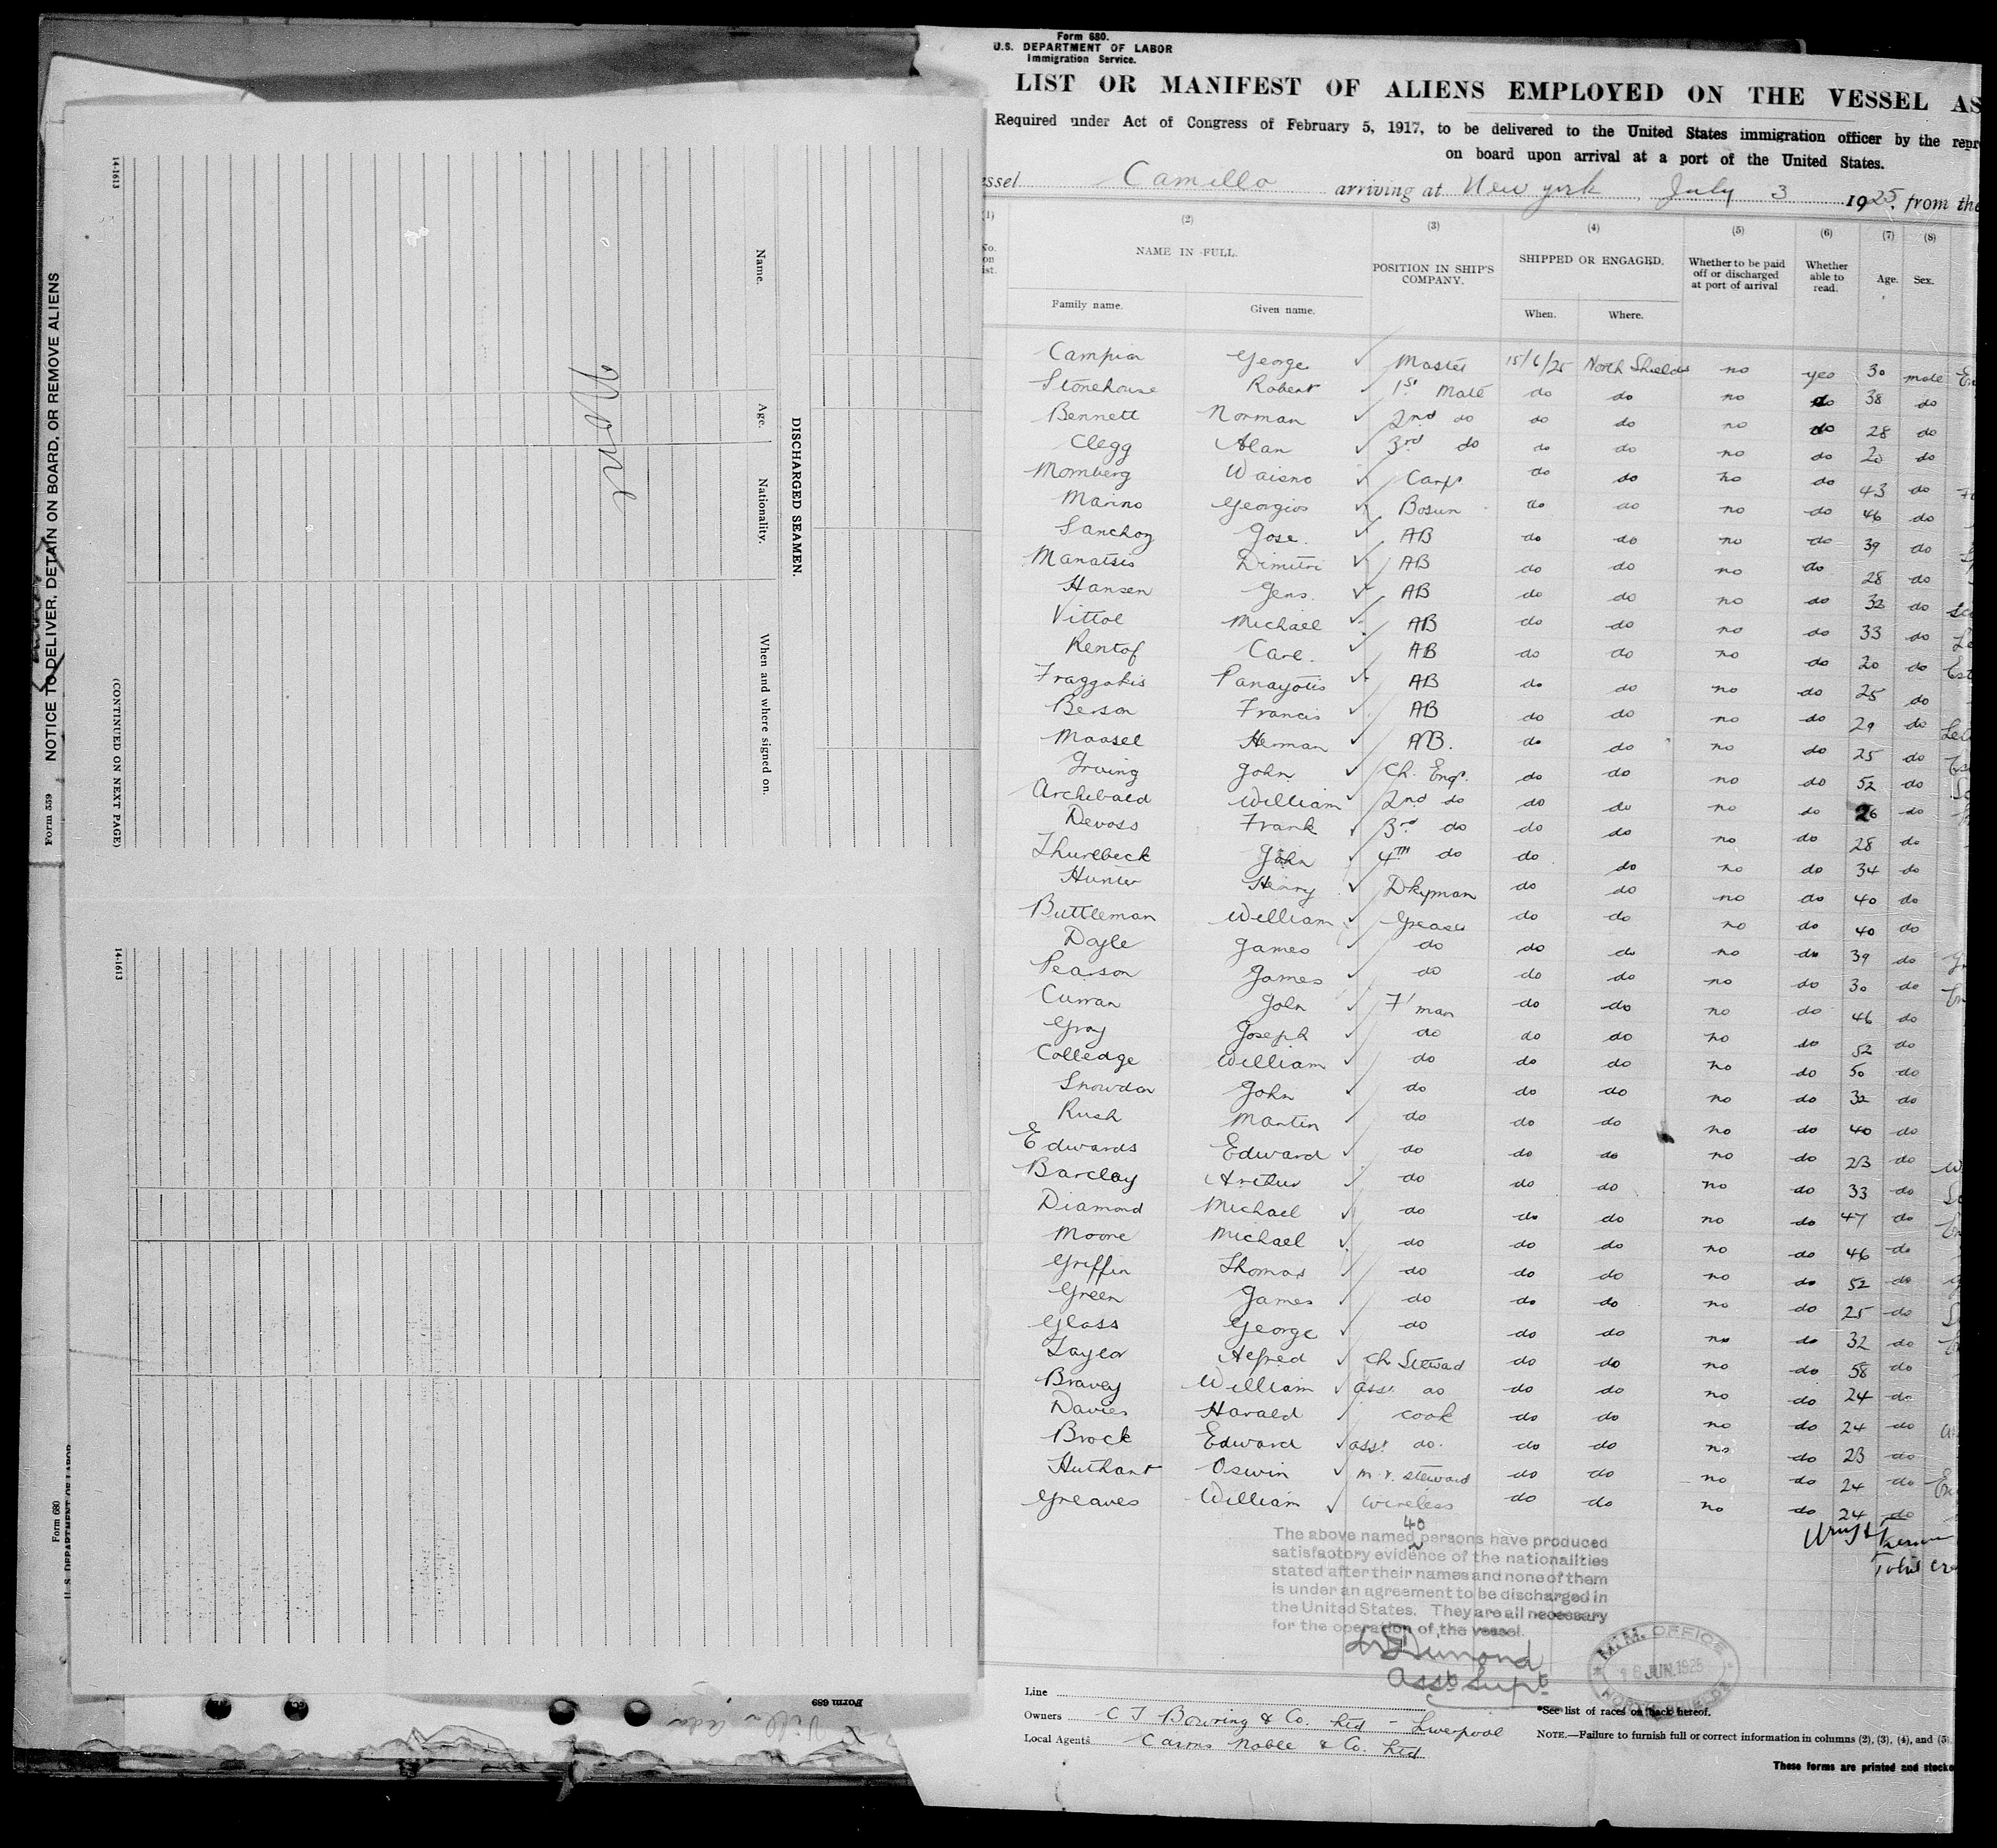 Form 680.
U.S. DEPARTMENT OF LABOR
Immigration Service.
LIST OR MANIFEST OF ALIENS EMPLOYED ON THE VESSEL AS
Required under Act of Congress of February 5, 1917, to be delivered to the United States immigration officer by the repr
on board upon arrival at a port of the United States.
ssel Camillo arriving at New york, July 3 1925, from the
(1) (2) (3) (4) (5) (6) (7) (8)
No. on ist. NAME IN FULL. POSITION IN SHIP'S COMPANY. SHIPPED OR ENGAGED. Whether to be paid off or discharged at port of arrival Whether able to read. Age. Sex.
Family name. Given name. When. Where.
Campion George ✓ Master 15/6/25 North Shields no yes 30 male
Stonehouse Robert ✓ 1st Mate do do no do 38 do
Bennett Norman ✓ 2nd do do do no do 28 do
Clegg Alan ✓ 3rd do do do no do 20 do
Momberg Waisno ✓ Carp do do no do 43 do
Marino Georgios ✓ Bosun do do no do 46 do
Sanchoz Jose. ✓ AB do do no do 39 do
Manatsis Dimitri ✓ AB do do no do 28 do
Hansen Jens. ✓ AB do do no do 32 do
Vittol Michael ✓ AB do do no do 33 do
Rentof Carl. ✓ AB do do no do 20 do Est
Fraggakis Panayotis ✓ AB do do no do 25 do
Berson Francis ✓ AB do do no do 29 do
Maasel Herman ✓ AB. do do no do 25 do
Irving John ✓ Ch. Engr. do do no do 52 do
Archibald William ✓ 2nd do do do no do 26 do
Devoss Frank ✓ 3rd do do do no do 28 do
Thurlbeck John ✓ 4TH do do do no do 34 do
Hunter Henry ✓ Dkyman do do no do 40 do
Buttleman William ✓ Greaser do do no do 40 do
Doyle James ✓ do do do no do 39 do
Pearson James ✓ do do do no do 30 do
Curran John ✓ F'man do do no do 46 do
Gray Joseph ✓ do do do no do 52 do
Colledge William ✓ do do do no do 50 do
Snowdon John ✓ do do do no do 32 do
Rush Martin ✓ do do do no do 40 do
Edwards Edward ✓ do do do no do 23 do
Barclay Arthur ✓ do do do no do 33 do
Diamond Michael ✓ do do do no do 47 do
Moore Michael ✓ do do do no do 46 do
Griffin Thomas ✓ do do do no do 52 do
Green James ✓ do do do no do 25 do
Glass George ✓ do do do no do 32 do
Taylor Alfred ✓ Ch Steward do do no do 58 do
Bravey William ✓ asst do do do no do 24 do
Davies Harald ✓ cook do do no do 24 do
Brock Edward ✓ asst do. do do no do 23 do
Huthart Oswin ✓ m. r. steward do do no do 24 do
Greaves William ✓ wireless do do no do 24 do
40
The above named persons have produced
satisfactory evidence of the nationalities
stated after their names and none of them
is under an agreement to be discharged in
the United States. They are all necessary
for the operation of the vessel.
Asst Supt
M.M. OFFICE
16 JUN.1925
NORTH SHIELDS
Line
Owners C T Bowring & Co. Ltd - Liverpool
Local Agents Cairns Noble & Co. Ltd
*See list of races on back hereof.
NOTE.—Failure to furnish full or correct information in columns (2), (3), (4), and (5)
These forms are printed and stocke
NOTICE TO DELIVER, DETAIN ON BOARD, OR REMOVE ALIENS
Form 559
14-1613
(CONTINUED ON NEXT PAGE)
DISCHARGED SEAMEN.
Name. Age. Nationality. When and where signed on.
None
14-1613
Form 680
U. S. DEPARTMENT OF LABOR
Form 689